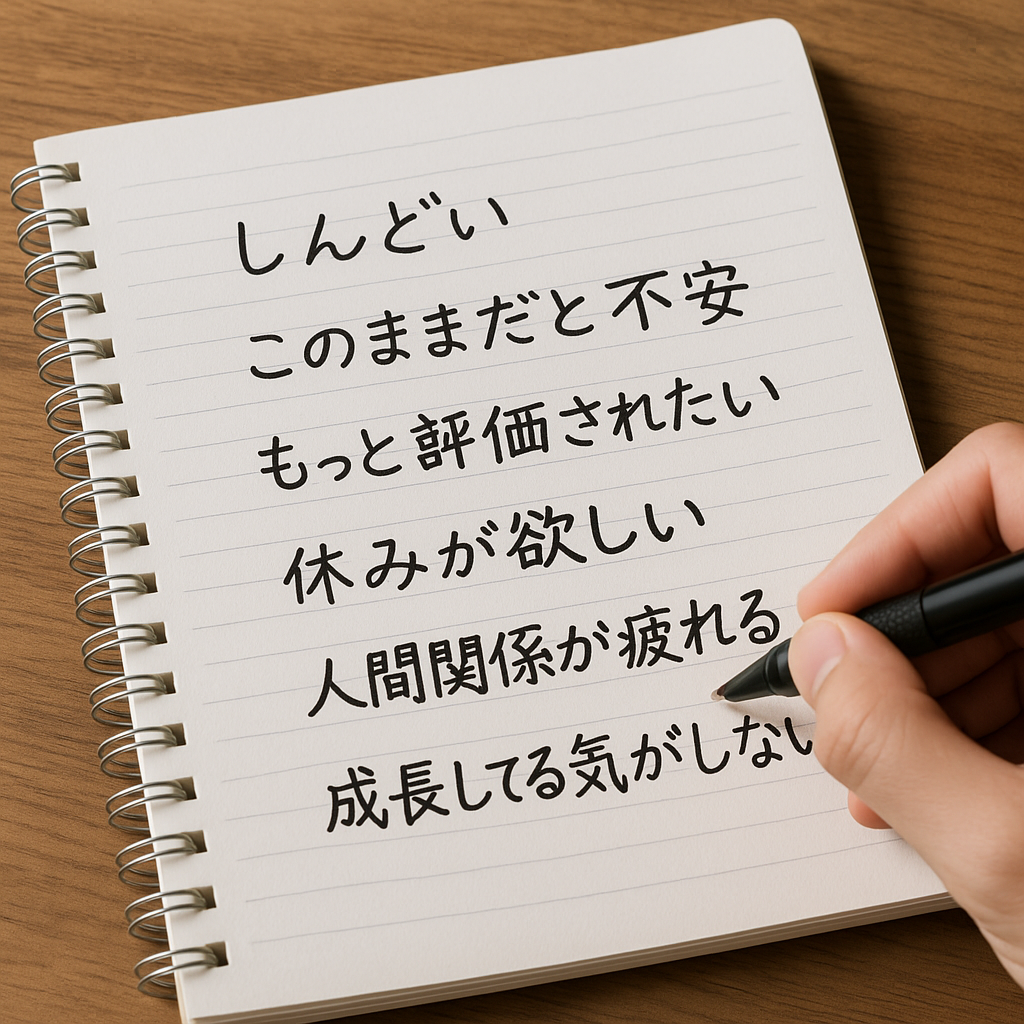 しんどい
このままだと不安
もっと評価されたい
休みが欲しい
人間関係が疲れる
成長してる気がしない